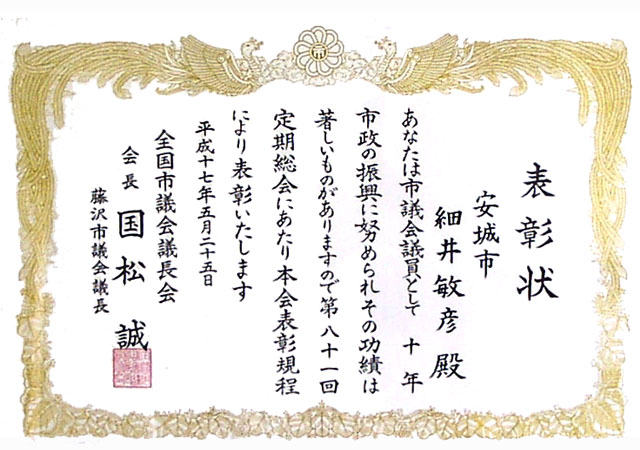 表彰状
安城市
細井敏彦殿
あなたは市議会議員として十年
市政の振興に努められその功績は
著しいものがありますので第八十一回
定期総会にあたり本会表彰規程
により表彰いたします
平成十七年五月二十五日
全国市議会議長会
会長国松誠
藤沢市議会議長